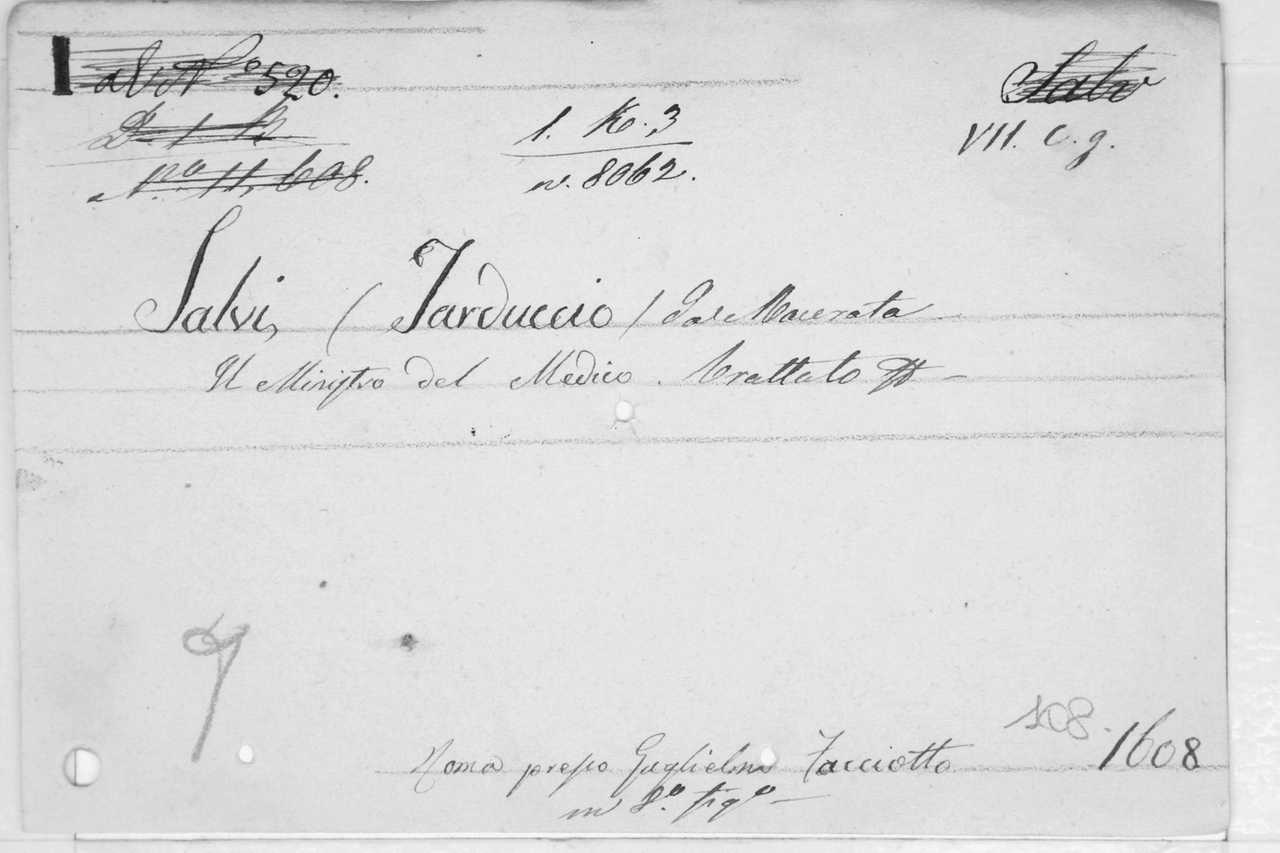 N.o 520.
N.o 11,608.
1. K. 3
n. 8062.
Salvi
VII. c. g.
Salvi, (Tarduccio) da Macerata
Il Ministro del Medico. Trattato
108.
Roma presso Guglielmo Facciotto 1608
in 8.o fig.o